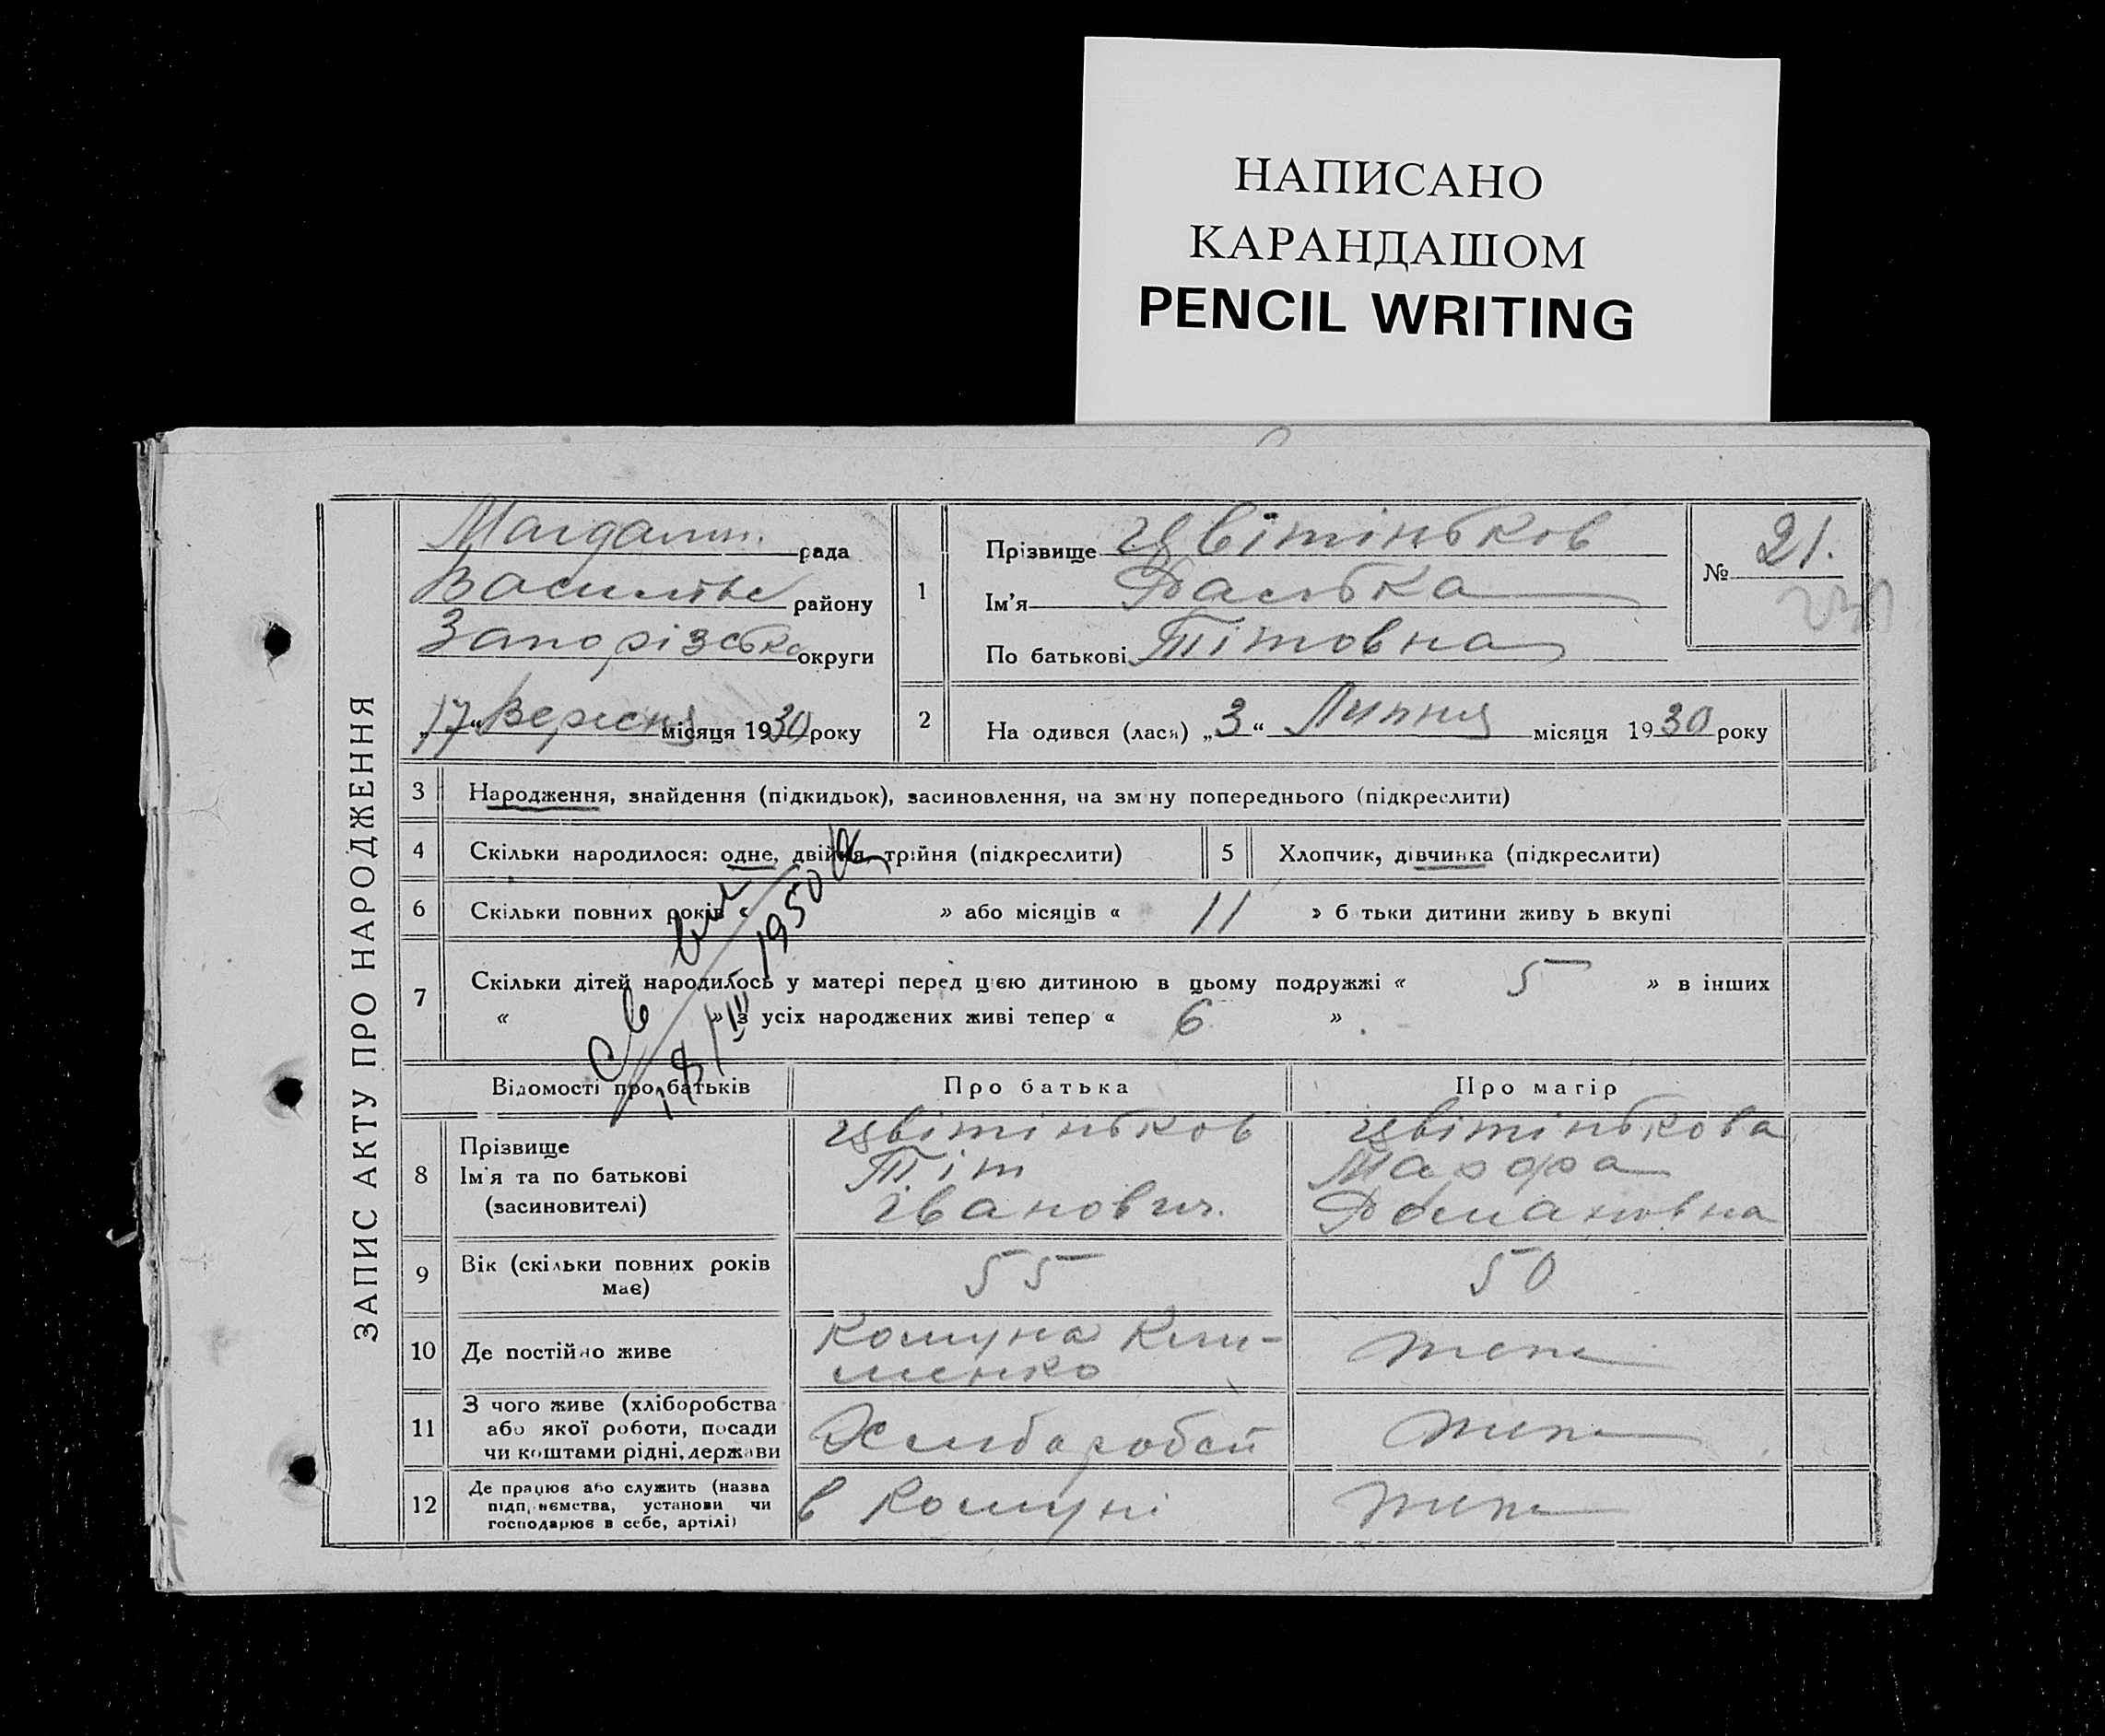 НАПИСАНО
КАРАНДАШОМ
PENCIL WRITING
ЗАПИС АКТУ ПРО НАРОДЖЕННЯ
Магдалин. рада
району
Запорізько округи
„17“ Вересня місяця 1930 року
1
Прізвище Цвітіньков
Ім'я
По батькові Тітовна
№ 21.
2 На одився (лася) „3“ Липня місяця 1930 року
3 Народження, знайдення (підкидьок), засиновлення, на зм ну попереднього (підкреслити)
4 Скільки народилося: одне, двійня, трійня (підкреслити)
5 Хлопчик, дівчинка (підкреслити)
6 Скільки повних років « » або місяців « 11 » б тьки дитини живу ь вкупі
7 Скільки дітей народилось у матері перед цією дитиною в цьому подружжі « 5 » в інших
« » з усіх народжених живі тепер « 6 » .
18/III 1950
Відомості про батьків Про батька Про матір
8 Прізвище
Ім'я та по батькові
(засиновителі)
Цвітіньков
Тіт
Іванович.
Цвітінькова
Марфа
Домановна
9 Вік (скільки повних років
має)
55
50
10 Де постійно живе
Комуна Кли-
менко
тепе
11 З чого живе (хліборобства
або якої роботи, посади
чи коштами рідні, держави
тепе
12 Де працює або служить (назва
підп, ємства, установи чи
господарює в себе, артілі)
в Комуні
тепе